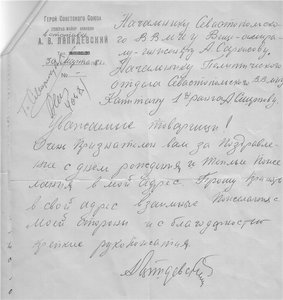 Герой Советского Союза
ГЕНЕРАЛ МАЙОР АВИАЦИИ
А. В. ЛЯПИДЕВСКИЙ
Начальнику Севастопольского
В.В.М.И.У Вице-адмира-
лу-инженеру А. Саранову,
№
Начальнику Политического
отдела Севастопольского В.В.М.И.У
Капитану 1го ранга
Уважаемые товарищи!
Очень Признателен вам за Поздравле-
ние с днем рождения и теплые Поже-
лания в мой адрес. Прошу принять
в свой адрес взаимные Пожелания с
моей стороны и с благодарностью
крепкие рукопожатия.